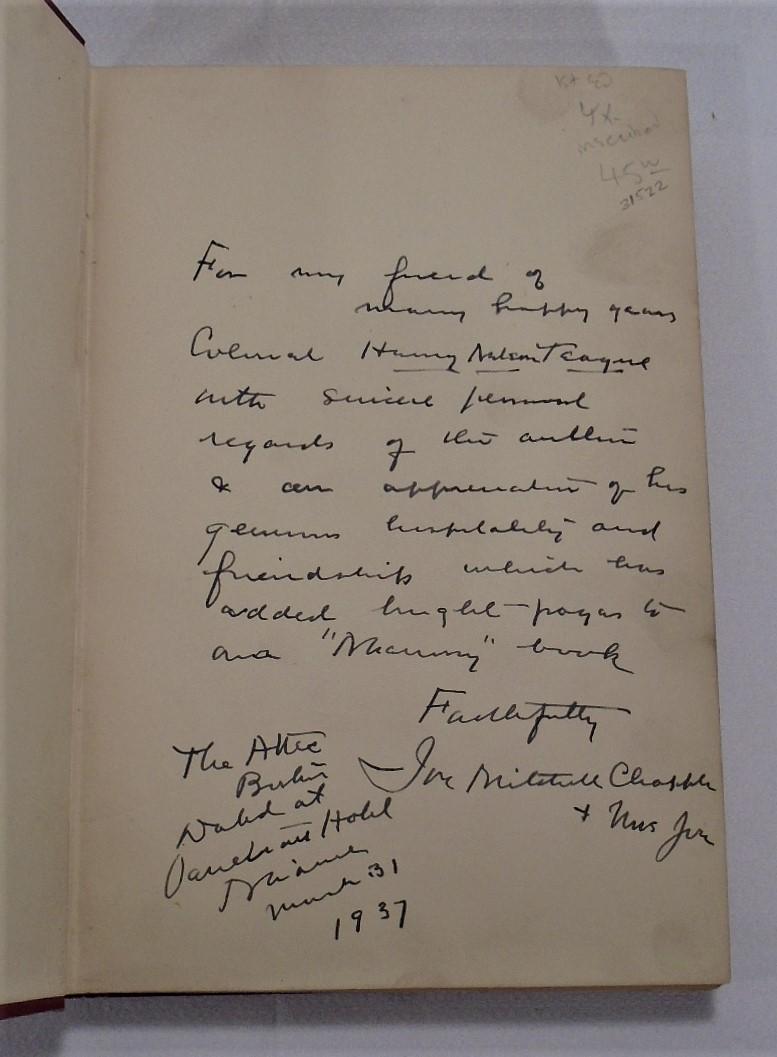 1st ed
4x.
inscribed
45
31522
For my friend of
many happy years
Colonel Harry Nelson Teague
with sincere personal
regards of the author
& an appreciation of his
generous hospitality and
friendship which has
added bright pages to
our "Miammy" book
Faithfully
Joe Mitchell Chapple
+ Mrs Joe
The Attic
Boston
Dated at
Hotel
Miami
March 31
1937